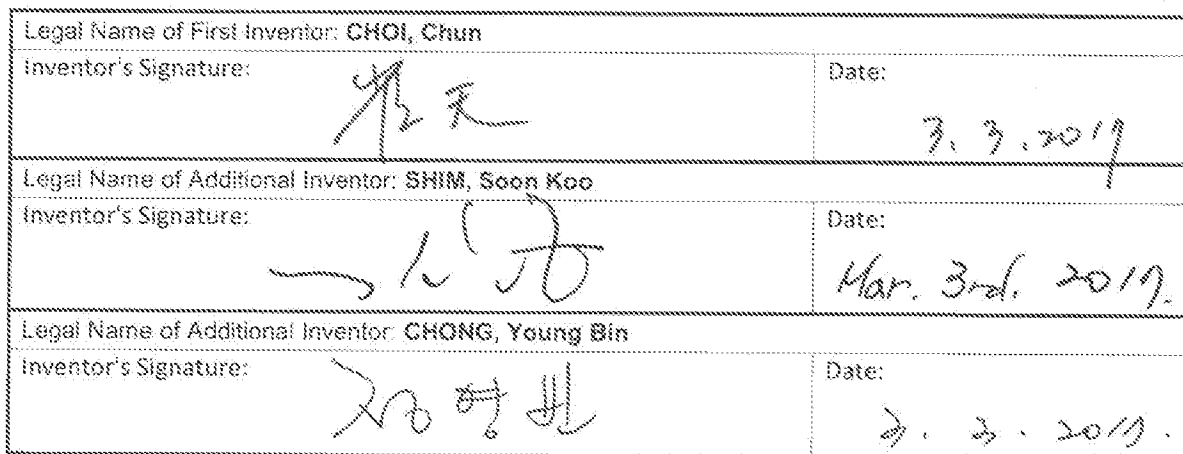 Legal Name of First Inventor: CHOI, Chun
Inventor's Signature:
Date:
崔天
3. 3. 2017
Legal Name of Additional Inventor: SHIM, Soon Koo
Inventor's Signature:
Date:
Mar. 3rd. 2017.
Legal Name of Additional Inventor: CHONG, Young Bin
Inventor's Signature:
Date:
정영빈
3. 3. 2017.